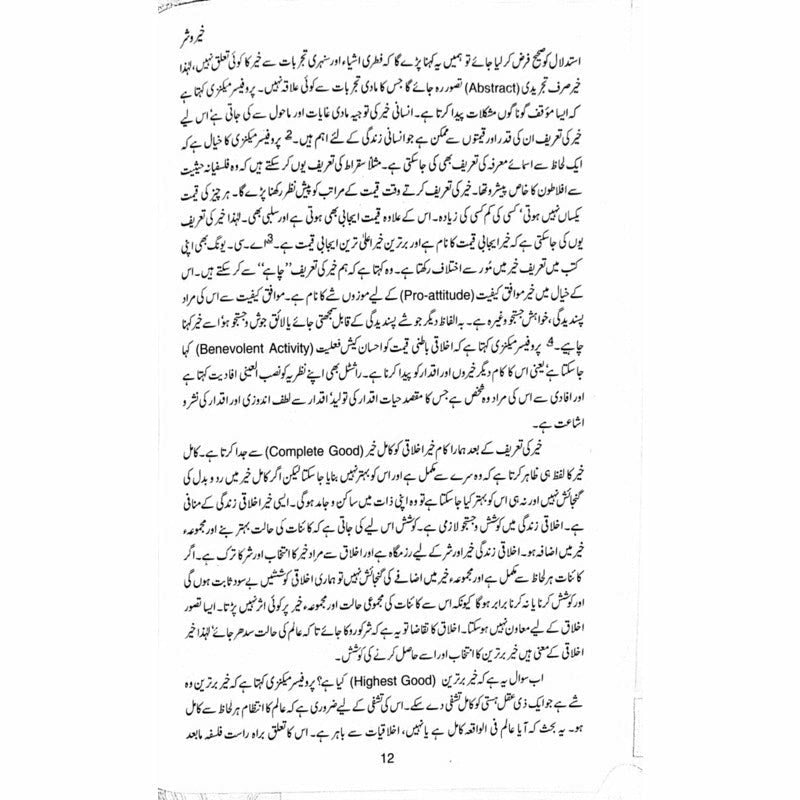 خیر و شر
استدلال کو صحیح فرض کر لیا جائے تو ہمیں یہ کہنا پڑے گا کہ فطری اشیاء اور سنہری تجربات سے خیر کا کوئی تعلق نہیں، لہٰذا
خیر صرف تجریدی (Abstract) تصور رہ جائے گا جس کا مادی تجربات سے کوئی علاقہ نہیں۔ پروفیسر میکنزی کہتا ہے
کہ ایسا مؤقف گوناگوں مشکلات پیدا کرتا ہے۔ انسانی خیر کی توجیہ مادی غایات اور ماحول سے کی جاتی ہے‘ اس لیے
خیر کی تعریف ان کی قدر اور قیمتوں سے ممکن ہے جو انسانی زندگی کے لئے اہم ہیں۔2 پروفیسر میکنزی کا خیال ہے کہ
ایک لحاظ سے اسمائے معرفہ کی تعریف بھی کی جا سکتی ہے۔ مثلاً سقراط کی تعریف یوں کر سکتے ہیں کہ وہ فلسفیانہ حیثیت
سے افلاطون کا خاص پیشرو تھا۔ خیر کی تعریف کرتے وقت قیمت کے مراتب کو پیش نظر رکھنا پڑے گا۔ ہر چیز کی قیمت
یکساں نہیں ہوتی‘ کسی کی کم کسی کی زیادہ۔ اس کے علاوہ قیمت ایجابی بھی ہوتی ہے اور سلبی بھی۔ لہٰذا خیر کی تعریف
یوں کی جا سکتی ہے کہ خیر ایجابی قیمت کا نام ہے اور برترین خیر اعلیٰ ترین ایجابی قیمت ہے۔3 اے۔سی۔ یونگ بھی اپنی
کتب میں تعریف خیر میں مُور سے اختلاف رکھتا ہے۔ وہ کہتا ہے کہ ہم خیر کی تعریف ’’چاہے‘‘ سے کر سکتے ہیں۔ اس
کے خیال میں خیر موافق کیفیت (Pro-attitude) کے لیے موزوں شے کا نام ہے۔ موافق کیفیت سے اس کی مراد
پسندیدگی، خواہش جستجو وغیرہ ہے۔ بہ الفاظ دیگر جو شے پسندیدگی کے قابل سمجھی جائے یا لائق جوش و جستجو ہو‘ اسے خیر کہنا
چاہیے۔4 پروفیسر میکنزی کہتا ہے کہ اخلاقی باطنی قیمت کو احسان کیش فعلیت (Benevolent Activity) کہا
جا سکتا ہے‘ یعنی اس کا کام دیگر خیروں اور اقدار کو پیدا کرنا ہے۔ راشڈل بھی اپنے نظریہ کو نصب العینی افادیت کہتا ہے
اور افادی سے اس کی مراد وہ شخص ہے جس کا مقصد حیات اقدار کی تولید‘ اقدار سے لطف اندوزی اور اقدار کی نشر و
اشاعت ہے۔
خیر کی تعریف کے بعد ہمارا کام خیر اخلاقی کو کامل خیر (Complete Good) سے جدا کرنا ہے۔ کامل
خیر کا لفظ ہی ظاہر کرتا ہے کہ وہ سرے سے مکمل ہے اور اس کو بہتر نہیں بنایا جا سکتا لیکن اگر کامل خیر میں رد و بدل کی
گنجائش نہیں اور نہ ہی اس کو بہتر کیا جا سکتا ہے تو وہ اپنی ذات میں ساکن و جامد ہوگی۔ ایسی خیر اخلاقی زندگی کے منافی
ہے۔ اخلاقی زندگی میں کوشش و جستجو لازمی ہے۔ کوشش اس لیے کی جاتی ہے کہ کائنات کی حالت بہتر بنے اور مجموعہء
خیر میں اضافہ ہو۔ اخلاقی زندگی خیر اور شر کے لیے رزمگاہ ہے اور اخلاق سے مراد خیر کا انتخاب اور شر کا ترک ہے۔ اگر
کائنات ہر لحاظ سے مکمل ہے اور مجموعہء خیر میں اضافے کی گنجائش نہیں تو ہماری اخلاقی کوششیں بے سود ثابت ہوں گی
اور کوشش کرنا یا نہ کرنا برابر ہو گا کیونکہ اس سے کائنات کی مجموعی حالت اور مجموعہء خیر پر کوئی اثر نہیں پڑتا۔ ایسا تصور
اخلاق کے لیے معاون نہیں ہو سکتا۔ اخلاق کا تقاضا تو یہ ہے کہ شر کو روکا جائے تا کہ عالم کی حالت سدھر جائے‘ لہٰذا خیر
اخلاقی کے معنی ہیں خیر برترین کا انتخاب اور اسے حاصل کرنے کی کوشش۔
اب سوال یہ ہے کہ خیر برترین (Highest Good) کیا ہے؟ پروفیسر میکنزی کہتا ہے کہ خیر برترین وہ
شے ہے جو ایک ذی عقل ہستی کو کامل تشفی دے سکے۔ اس کی تشفی کے لیے ضروری ہے کہ عالم کا انتظام ہر لحاظ سے کامل
ہو۔ یہ بحث کہ آیا عالم فی الواقعہ کامل ہے یا نہیں، اخلاقیات سے باہر ہے۔ اس کا تعلق براہ راست فلسفہ مابعد
12